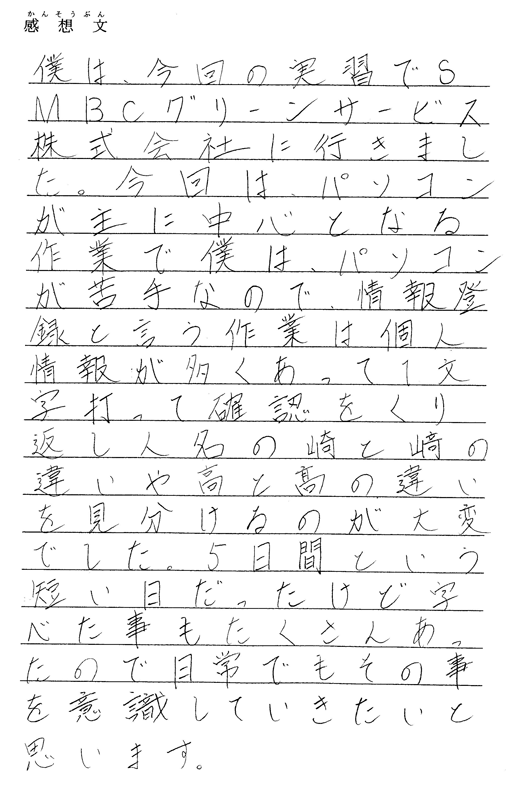 かんそうぶん
感想文
僕は、今回の実習でS
MBCグリーンサービス
株式会社に行きまし
た。今回は、パソコン
が主に中心となる
作業で僕は、パソコン
が苦手なので、情報登
録と言う作業は個人
情報が多くあって1文
字打って確認をくり
返し人名の崎と﨑の
違いや高と髙の違い
を見分けるのが大変
でした。5日間という
短い日だったけど字
べた事もたくさんあっ
たので日常でもその事
を意識していきたいと
思います。